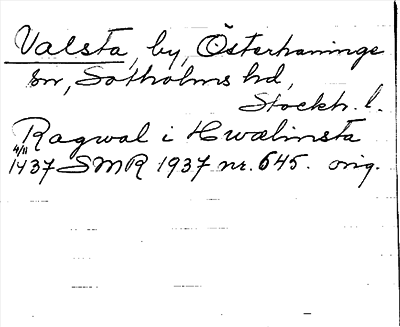 Valsta, by, Österhaninge
sn, Sotholms hd,
Stockh. l.
Ragwal i Hwælmsta
4/11
1437 SMR 1937 nr. 645. orig.